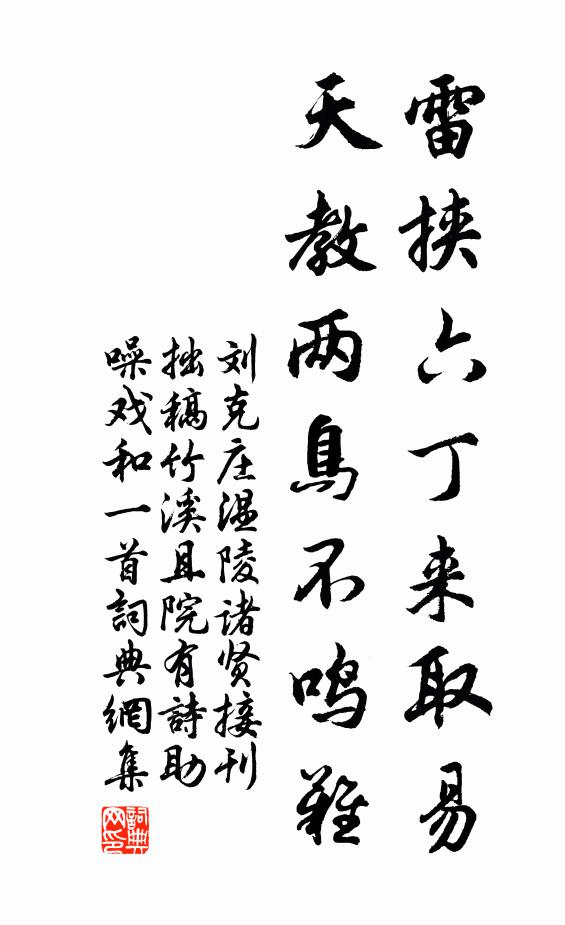 雷挟六丁来取易
天教两鳥不鸣難
刘克庄温陵诸贤接刊
拙稿竹溪且院有詩助
噪戏和一首詞典網集
詞典
网印